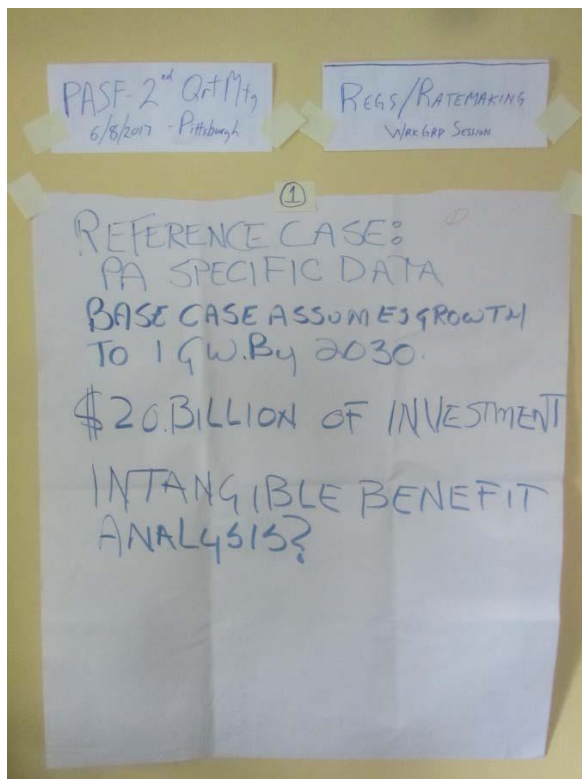 PASF - 2nd Qrt Mtg
6/8/2017 - Pittsburgh
REGS/RATEMAKING
WRK GRP SESSION
1
REFERENCE CASE:
PA SPECIFIC DATA
BASE CASE ASSUMES GROWTH
TO 1 GW. By 2030.
$20. BILLION OF INVESTMENT
INTANGIBLE BENEFIT
ANALYSIS?